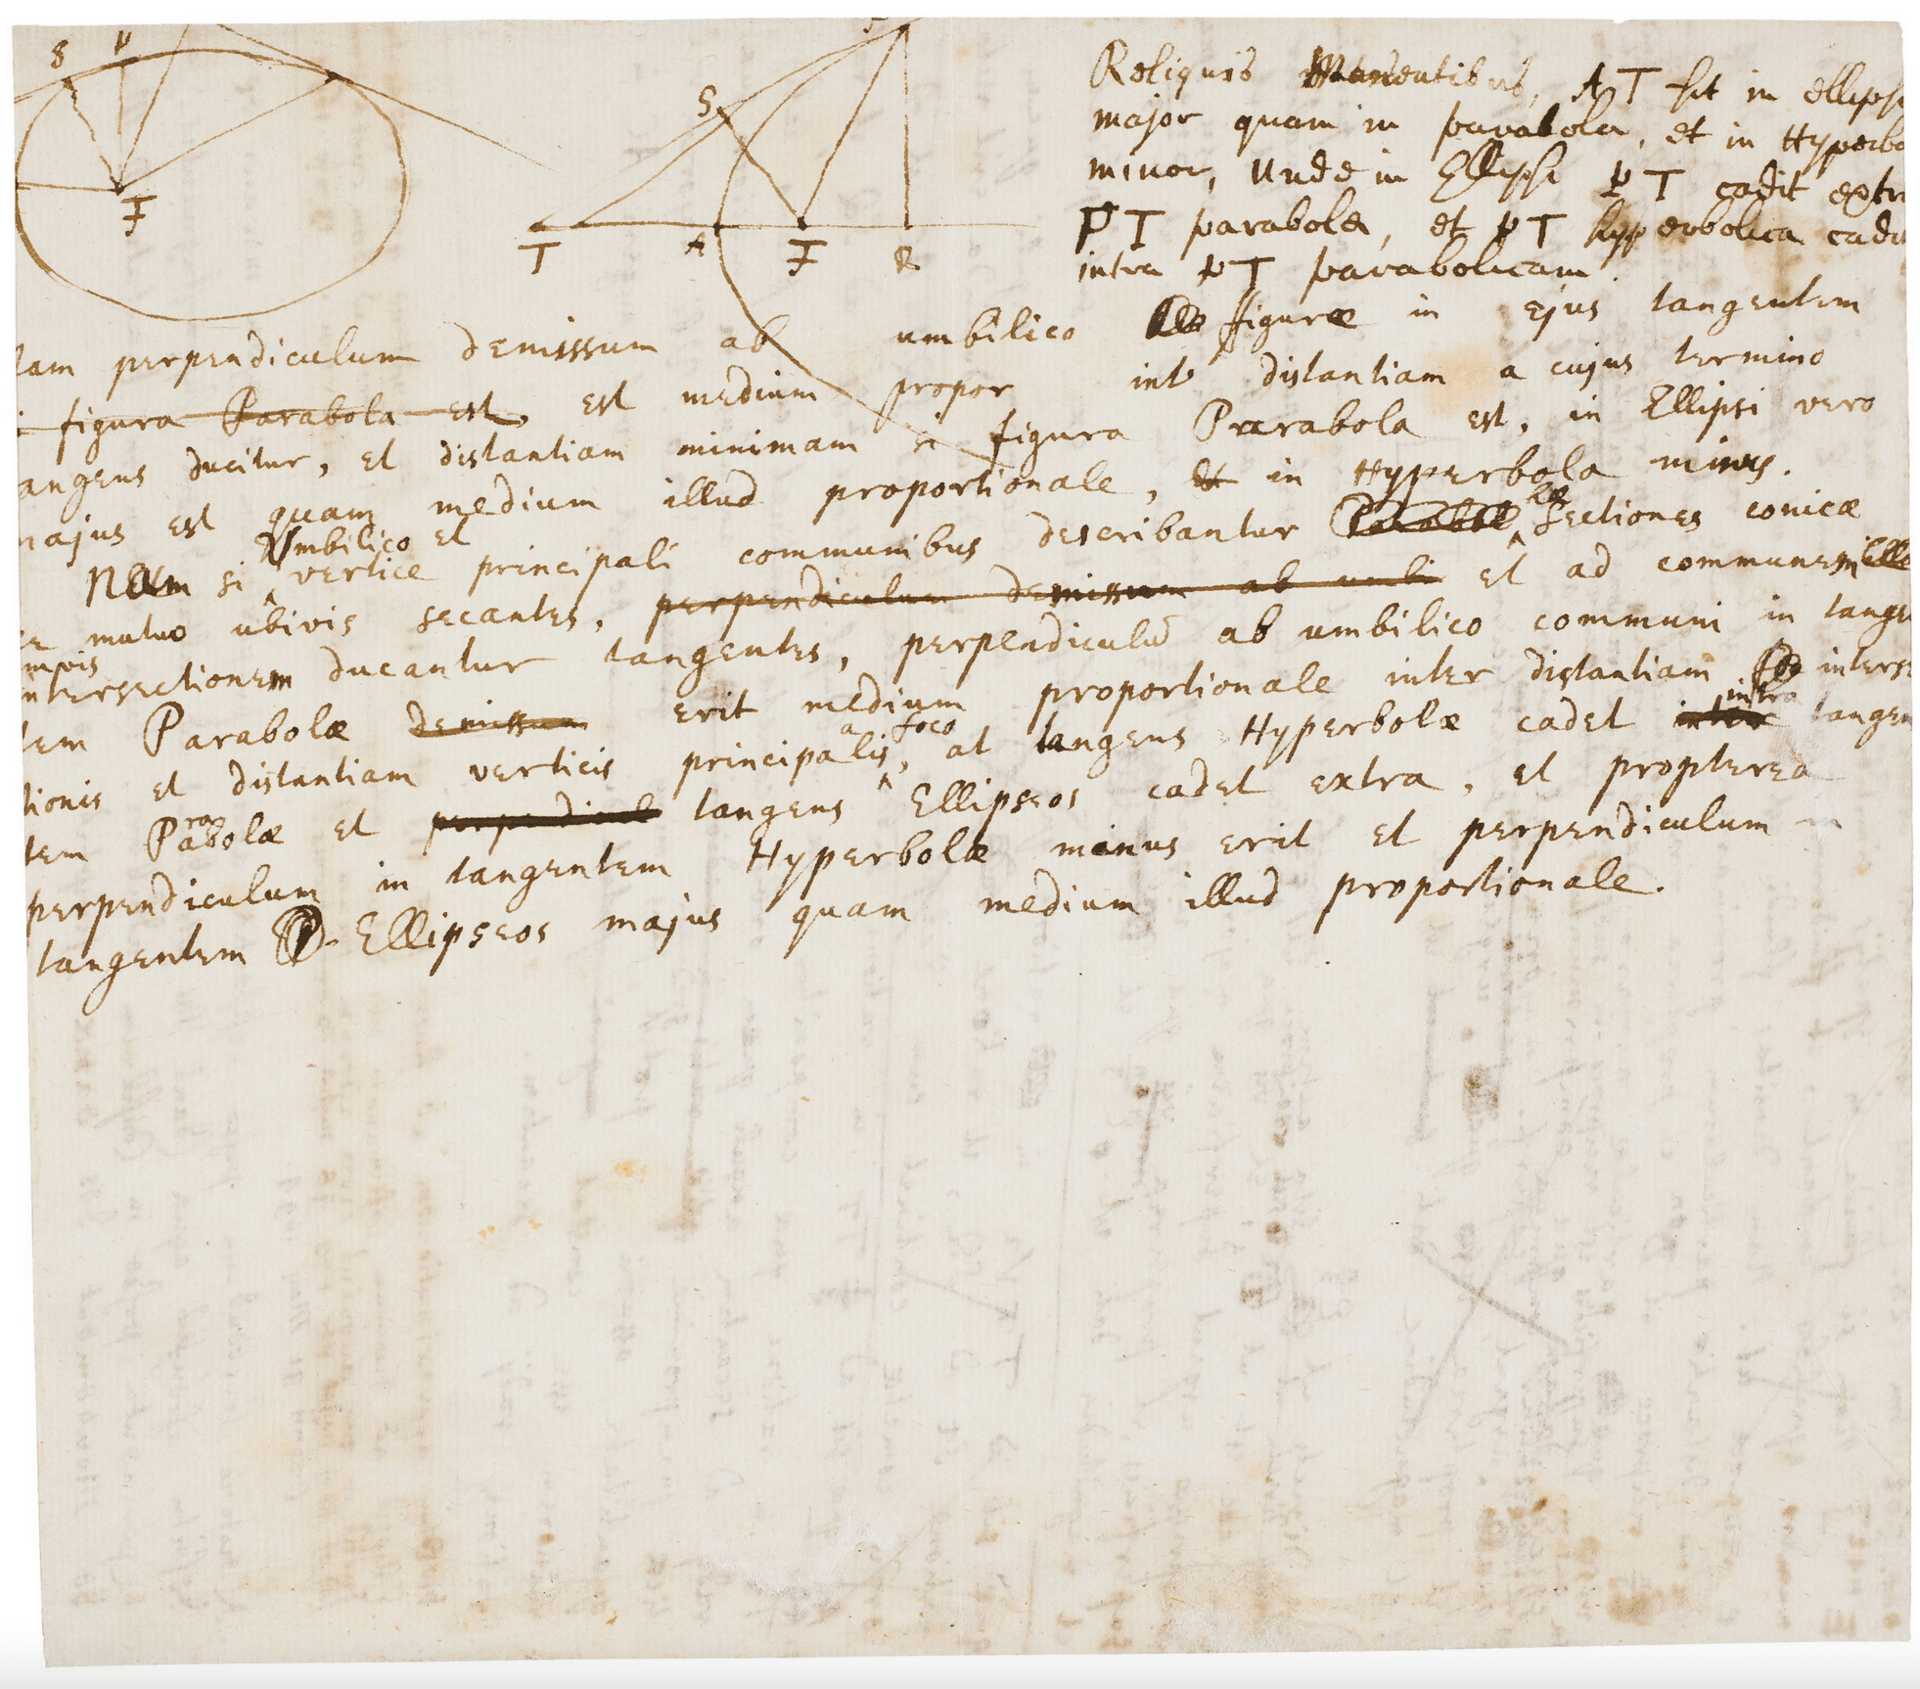 S P
F
S
T A F R
Reliquis Manentibus, AT fit in ellipsi
major quam in parabola, et in Hyperbo
minor, Unde in Ellipsi PT cadit extra
PT parabolea, et PT hyperbolica cadit
intra PT parabolicam.
tam perpendiculum demissum ab umbilico figuræ in ejus tangentem
figura Parabola est, est medium propor int distantiam a cujus termino
angens ducitur, et distantiam minimam si figura Parabola est, in Ellipsi vero
majus est quam medium illud proportionale, et in Hyperbola minus.
Nam si Umbilico et vertice principali communibus describantur Parabol hæ Sectiones conicæ
se mutuo ubivis secantes, perpendiculum demissum ab umbi et ad communem ille
intersectionem ducantur tangentes, perpendiculū ab umbilico communi in tange
tem Parabolæ demissum erit medium proportionale inter distantiam interse
tionis et distantiam verticis principalis a foco, at tangens Hyperbolæ cadet inter intra tangen
tem Parabolæ et perpendicul tangens Ellipseos cadet extra, et propterea
perpendiculum in tangentem Hyperbolæ minus erit et perpendiculum in
tangentem Ellipseos majus quam medium illud proportionale.